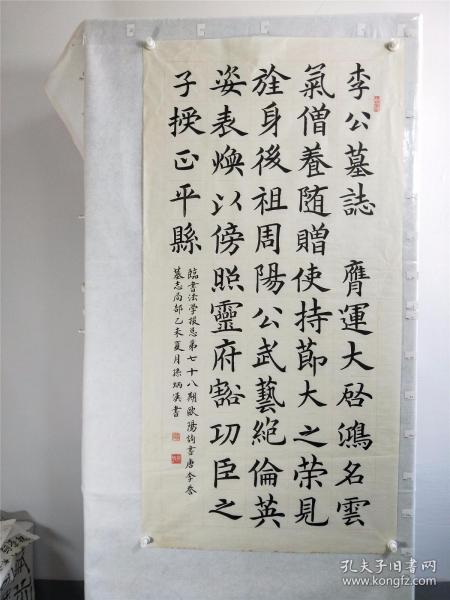 李公墓誌 膺運大启鴻名雲
氣僧養随贈使持節大之荣見
於身後祖周陽公武藝絕倫英
姿表煥以傍照靈府豁功臣之
子授正平縣
临書法学报总第七十八期歐陽询書唐李誉
墓志局部乙未夏月孫炳
孔夫子旧书网
www.kongfz.com